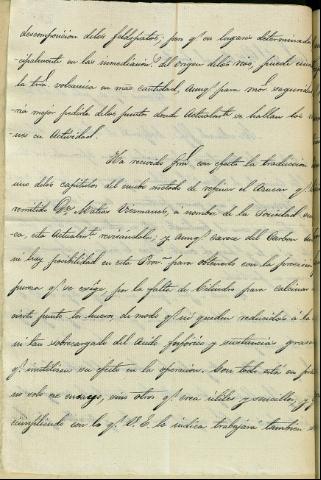 descomposicion delos feldspatos; pon qe en lugares determinada
cipalmente en las inmediacion.s del origen delos rios, puede
la tra. volcanica en mas cantidad, aunqe para mor seguridad
ria mejor pedirla delos puntos donde Actualmte. se hallan los
nes en Actividad.
Ha recivido con efecto la traduccion
uno delos capitulos del nuevo metodo de refinar el Azucar qe
remitido Dn Matias a nombre de la Sociedad
ca, esta Actualmte. revisandola; y aunqe carece del Carbon
ni hay posibilidad en esta Prova. para obtenerlo con la
pureza qe se exige, por la falta de Cilindro para calcinar
cierto punto los huesos, de modo qe ni queden reducidos á la
ni tan sobrecargado del Acido fosforico y sustancias grasas
qe inutilicen su efecto en la operacion. Con todo esto en
no solo ese ensayo, sino otros qe crea utiles y sencillos, y
cumpliendo con lo qe V. E. le indica trabajará tambien